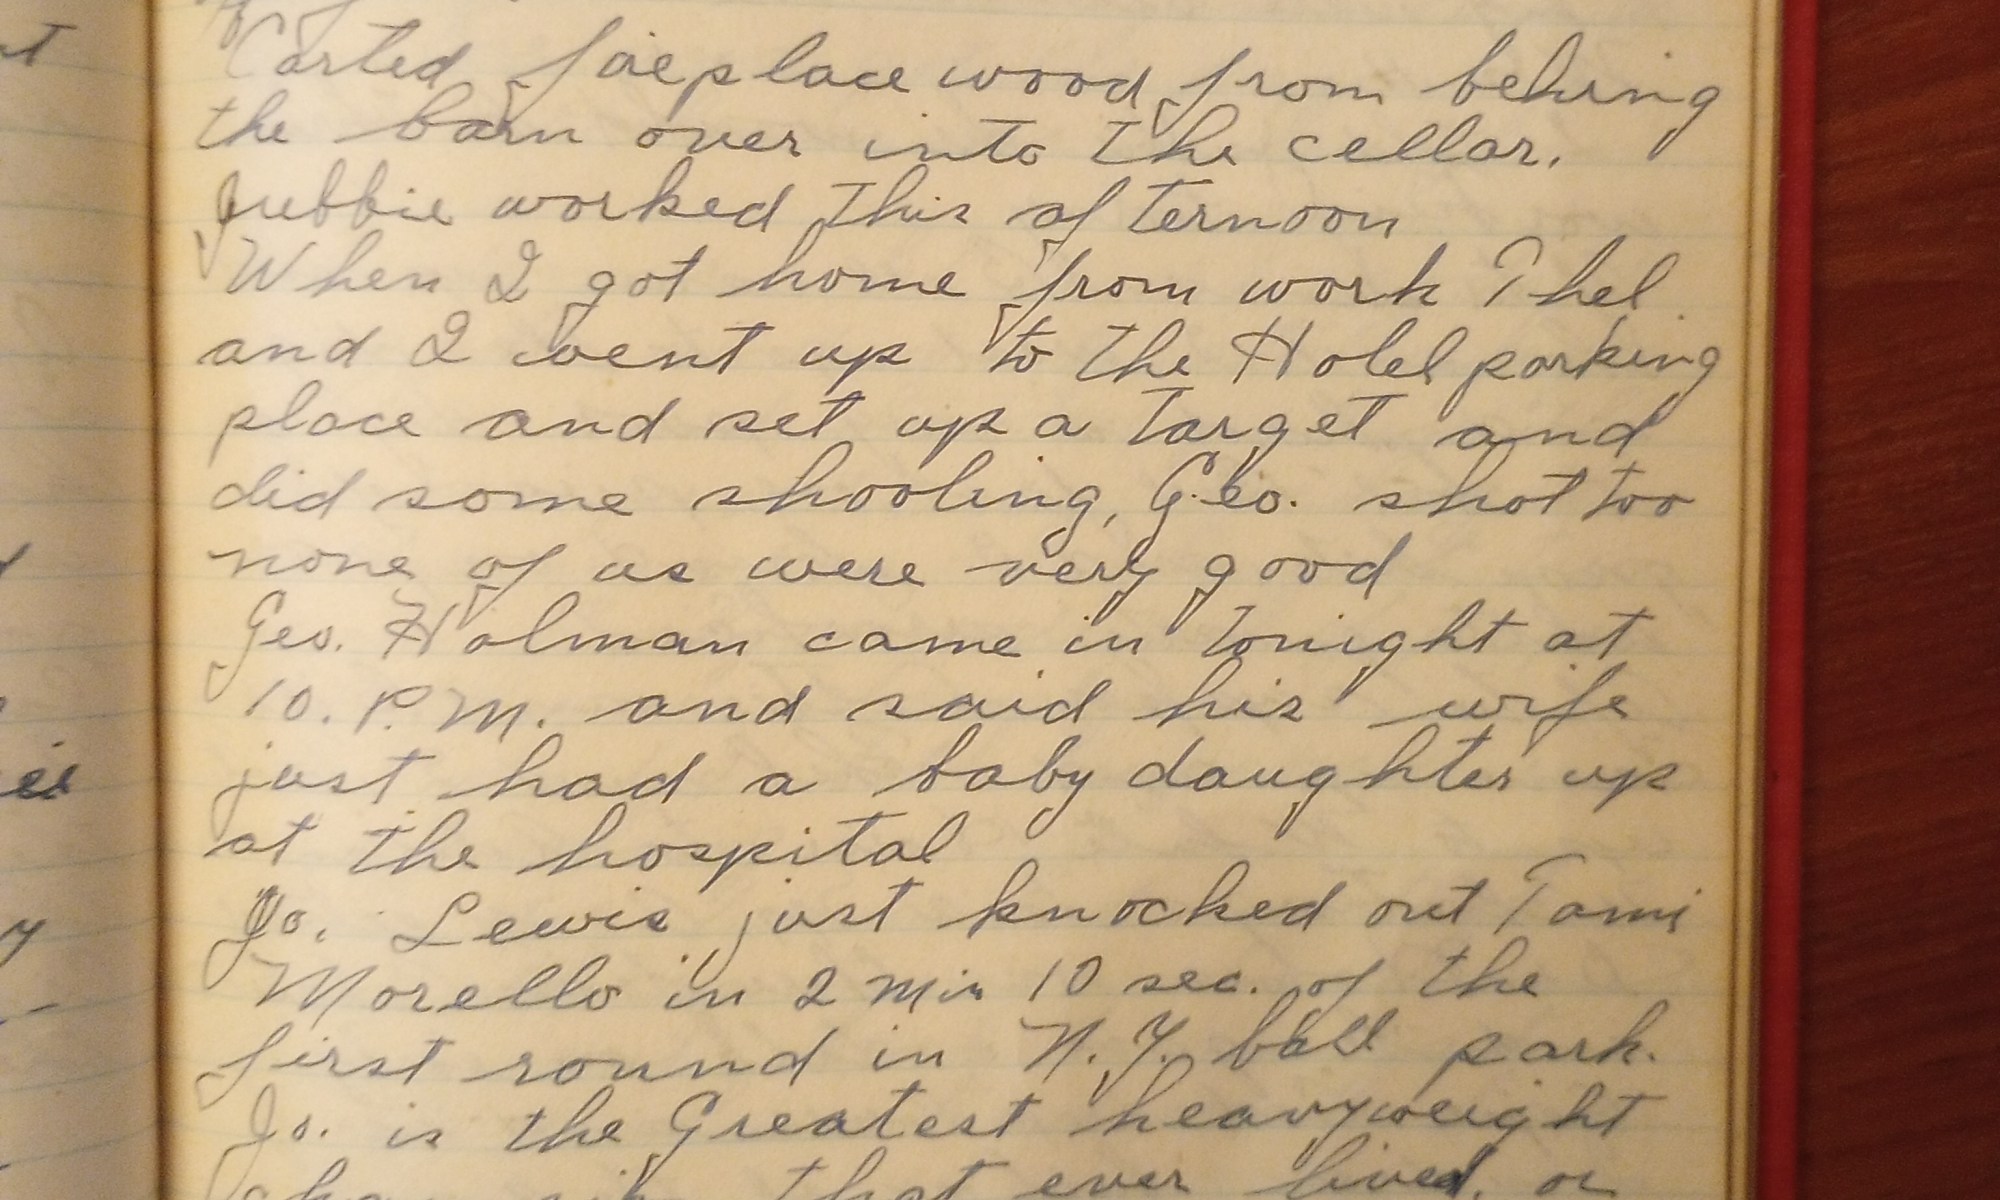 Carted fireplace wood from behing
the barn over into the cellar.
Jubbie worked this afternoon
When I got home from work Thel
and I went up to the Hotel parking
place and set up a target and
did some shooting, Geo. shot too
none of us were very good
Geo. Holman came in tonight at
10. P.M. and said his wife
just had a baby daughter up
at the hospital
Jo. Lewis just knocked out Tami
Morello in 2 min 10 sec. of the
first round in N.Y. ball park.
Jo. is the Greatest heavyweight
that ever lived, or